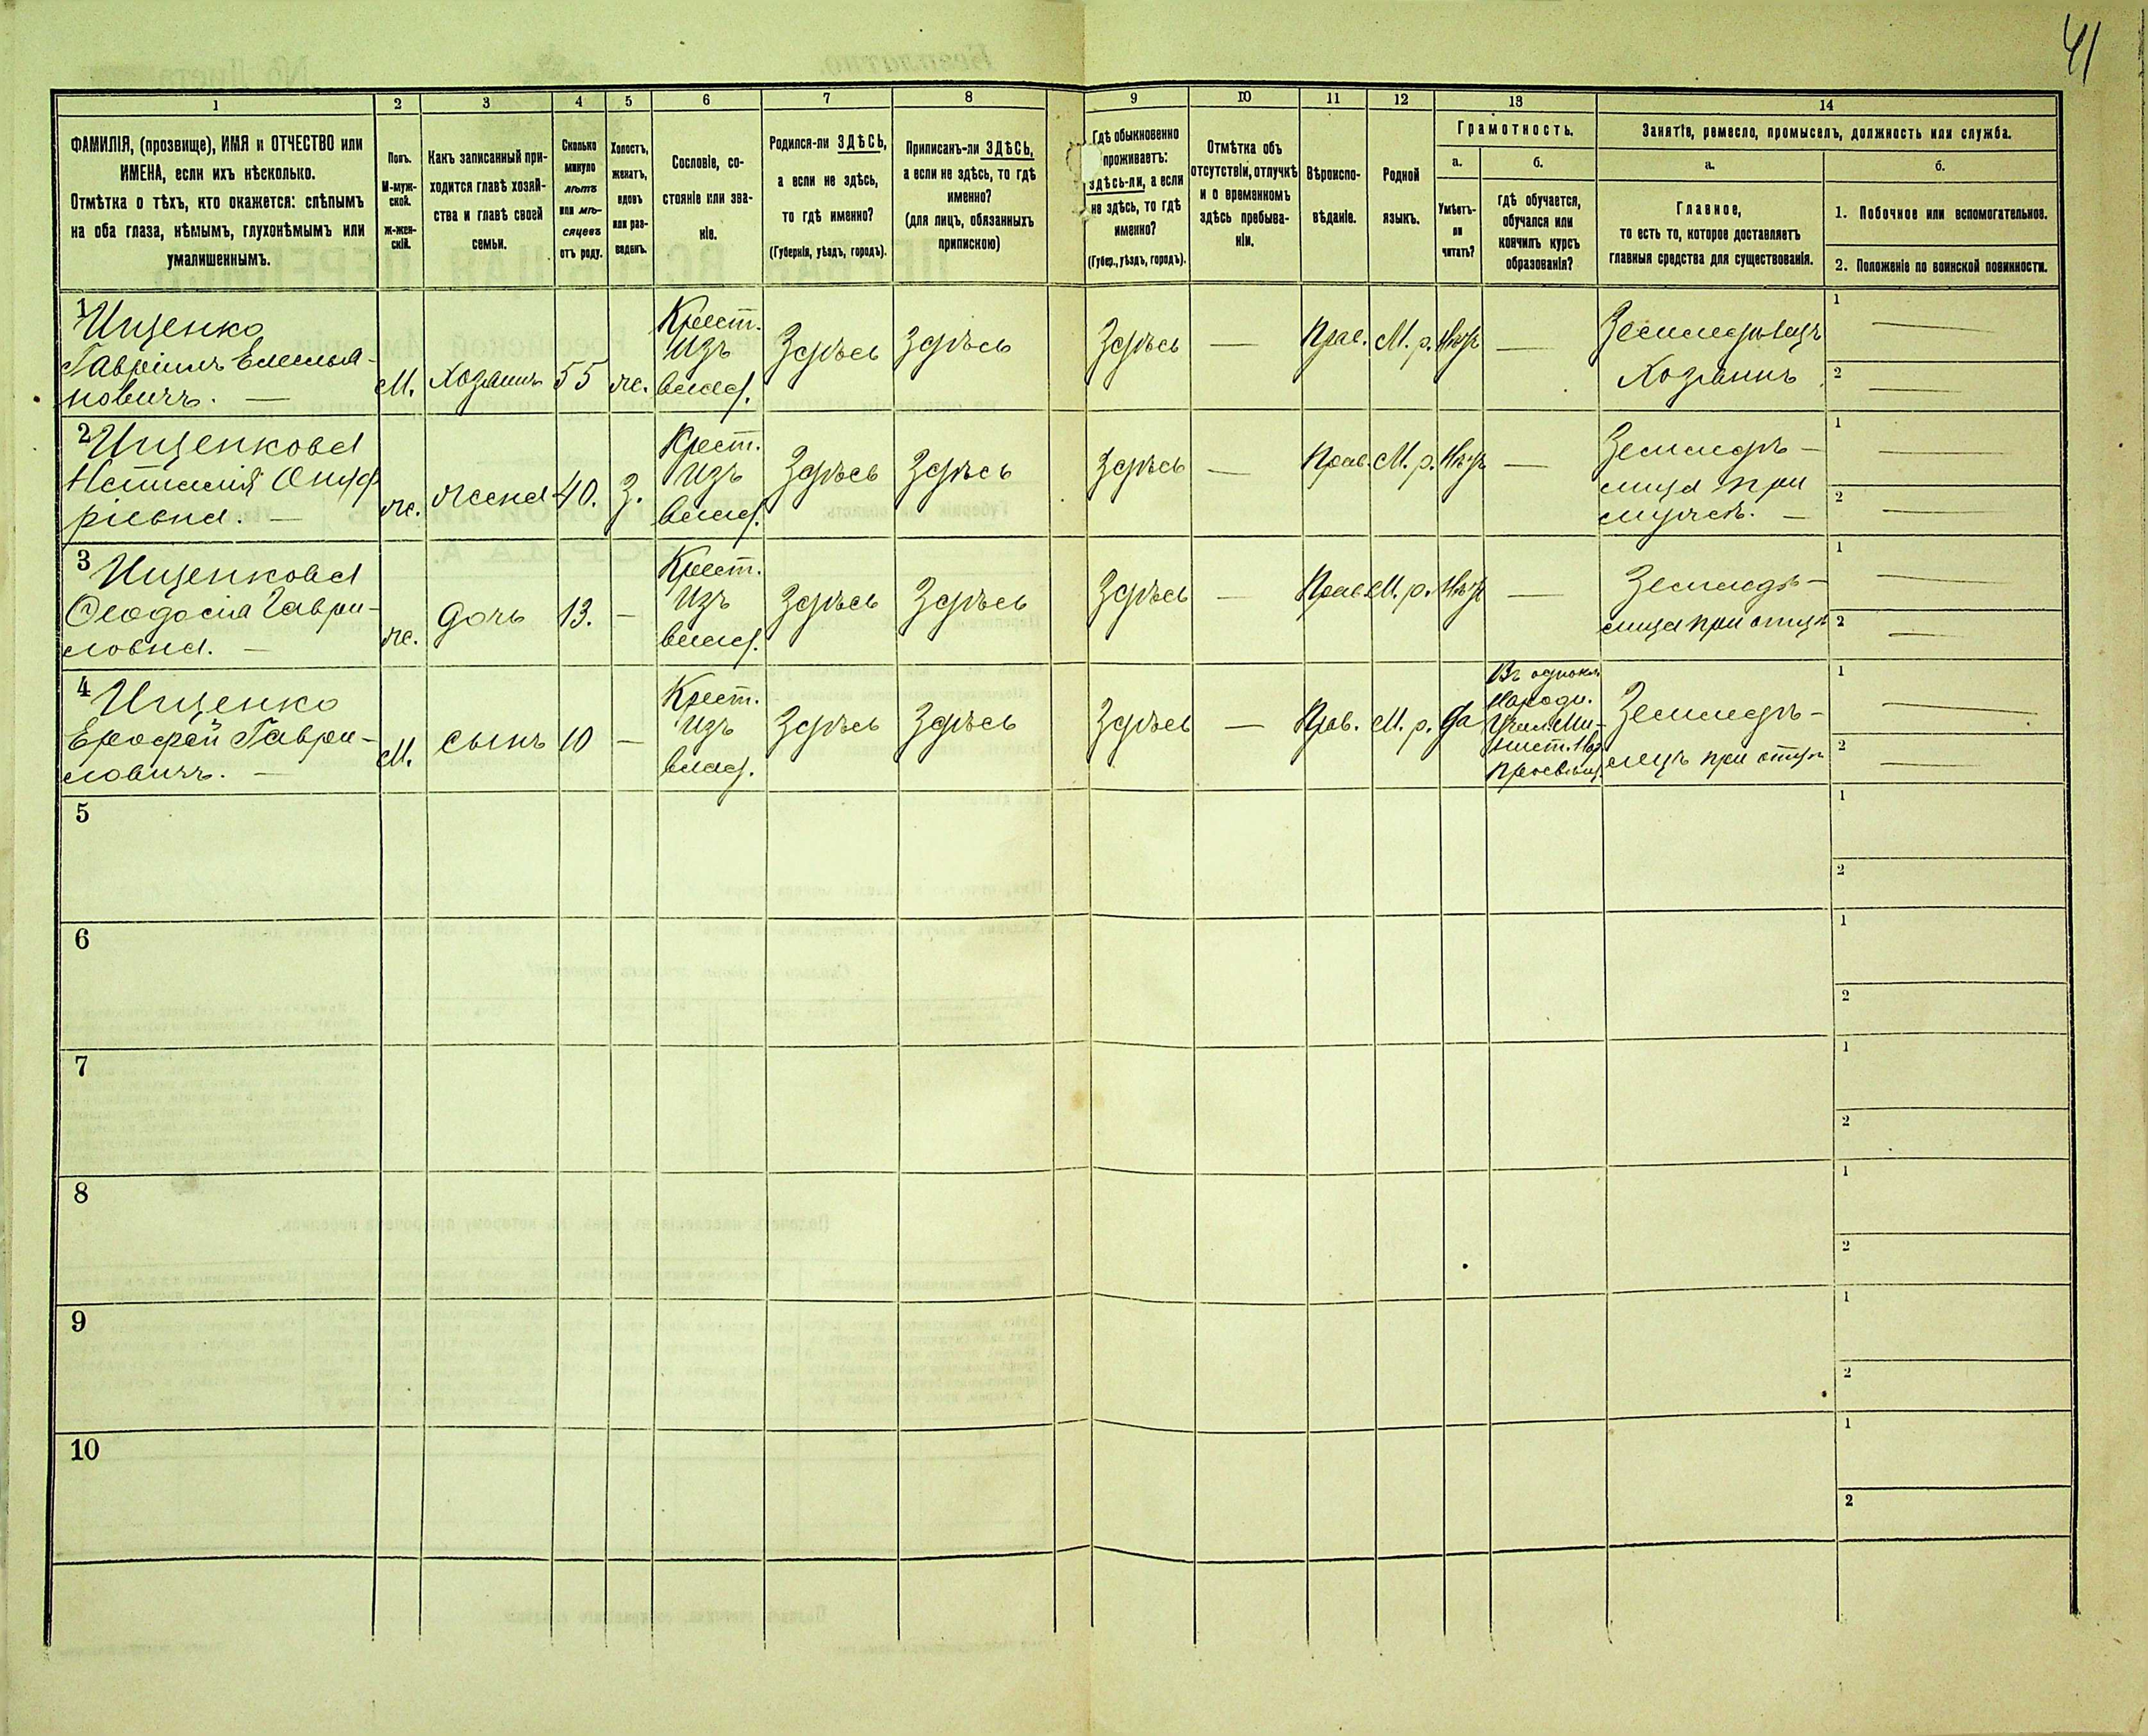 41
1 2 3 4 5 6 7 8 9 10 11 12 13 14
ФАМИЛІЯ, (прозвище), ИМЯ и ОТЧЕСТВО или
ИМЕНА, если ихъ нѣсколько.
Отмѣтка о тѣхъ, кто окажется: слѣпымъ
на оба глаза, нѣмымъ, глухонѣмымъ или
умалишеннымъ.
Полъ.
М-муж-
ской.
ж-жен-
скій.
Какъ записанный при-
ходится главѣ хозяй-
ства и главѣ своей
семьи.
Сколько
минуло
лѣтъ
или мѣ-
сяцевъ
отъ роду.
Холостъ,
женатъ,
вдовъ
или раз-
веденъ.
Сословіе, со-
стояніе или зва-
ніе.
Родился-ли ЗДѢСЬ,
а если не здѣсь,
то гдѣ именно?
(Губернія, уѣздъ, городъ).
Приписанъ-ли ЗДѢСЬ,
а если не здѣсь, то гдѣ
именно?
(для лицъ, обязанныхъ
припискою)
Гдѣ обыкновенно
проживаетъ:
здѣсь-ли, а если
не здѣсь, то гдѣ
именно?
(Губер., уѣздъ, городъ).
Отмѣтка объ
отсутствіи, отлучкѣ
и о временномъ
здѣсь пребыва-
ніи.
Вѣроиспо-
вѣданіе.
Родной
языкъ.
Грамотность.
а.
Умѣетъ-
ли
читать?
б.
гдѣ обучается,
обучался или
кончилъ курсъ
образованія?
Занятіе, ремесло, промыселъ, должность или служба.
а.
Главное,
то есть то, которое доставляетъ
главныя средства для существованія.
б.
1. Побочное или вспомогательное.
2. Положеніе по воинской повинности.
1
Ищенко
Гавріилъ Емелья-
новичъ. —
М.
Хозяинъ
55
ж.
Крест.
изъ
влад.
Здѣсь
Здѣсь
Здѣсь
—
Прав.
М. р.
Нѣтъ
—
Земледѣлецъ
Хозяинъ
1 —
2 —
2
Ищенкова
Наталія
ріевна. —
ж.
жена
40.
З.
Крест.
изъ
влад.
Здѣсь
Здѣсь
Здѣсь
—
Прав.
М. р.
Нѣтъ
—
Земледѣ-
лица при
мужѣ. —
1 —
2 —
3
Ищенкова
Ѳеодосія Гаври-
ловна. —
ж.
дочь
13.
—
Крест.
изъ
влад.
Здѣсь
Здѣсь
Здѣсь
—
Прав.
М. р.
Нѣтъ
—
Земледѣ-
лица при отцѣ
1 —
2 —
4
Ищенко
Ерофей Гаври-
ловичъ. —
М.
сынъ
10
—
Крест.
изъ
влад.
Здѣсь
Здѣсь
Здѣсь
—
Прав.
М. р.
Да
Въ однокл.
Народн.
Учил. Ми-
нист. Нар.
Просвѣщ.
Земледѣ-
лецъ при отцѣ
1 —
2 —
5
1
2
6
1
2
7
1
2
8
1
2
9
1
2
10
1
2